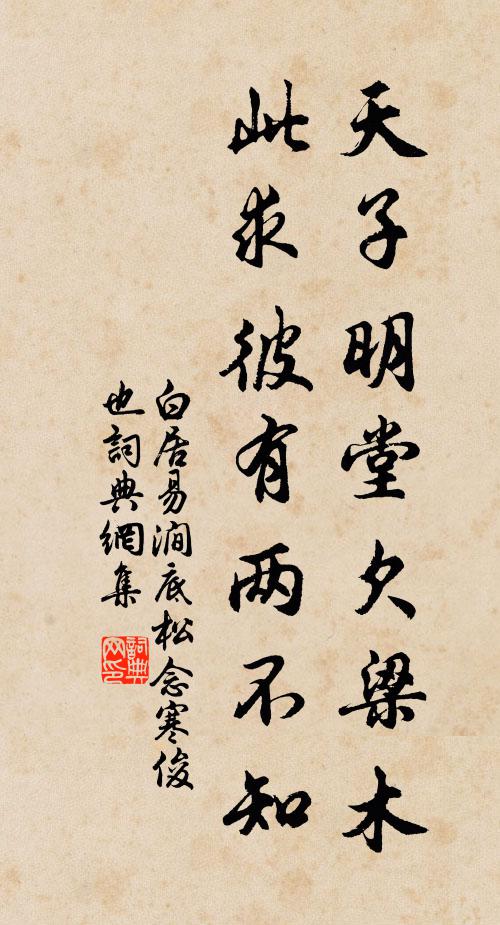 天子明堂欠梁木
此求彼有两不知
白居易澗底松念寒俊
也詞典網集
詞典網印